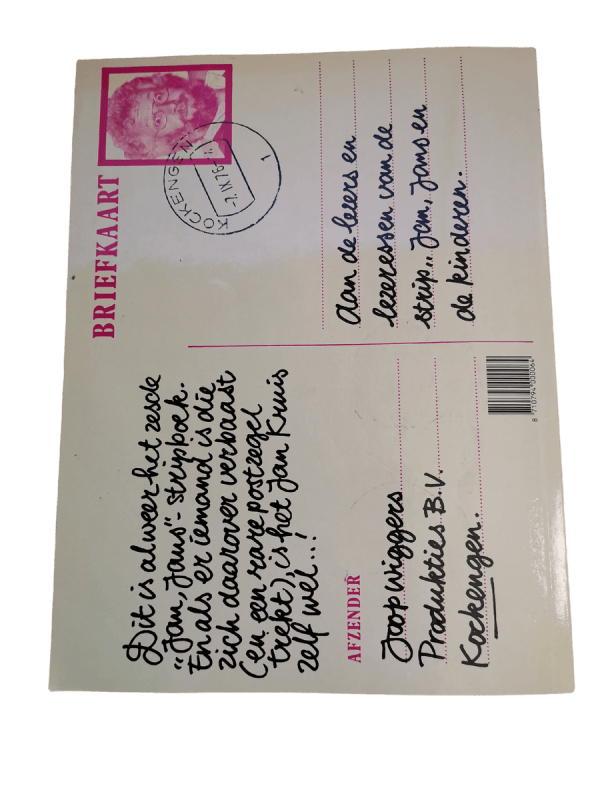 BRIEFKAART
KOCKENGEN
-7.IX.76-
1
Dit is alweer het zesde
"Jan, Jans"- stripboek.
En als er iemand is die
zich daarover verbaast
(en een rare postzegel
trekt), is het Jan Kruis
zelf wel...!
AFZENDER
Joop Wiggers
Produkties B.V.
Kockengen.
aan de lezers en
lezeressen van de
strip „ Jan, Jans en
de kinderen.
8 710794 000064